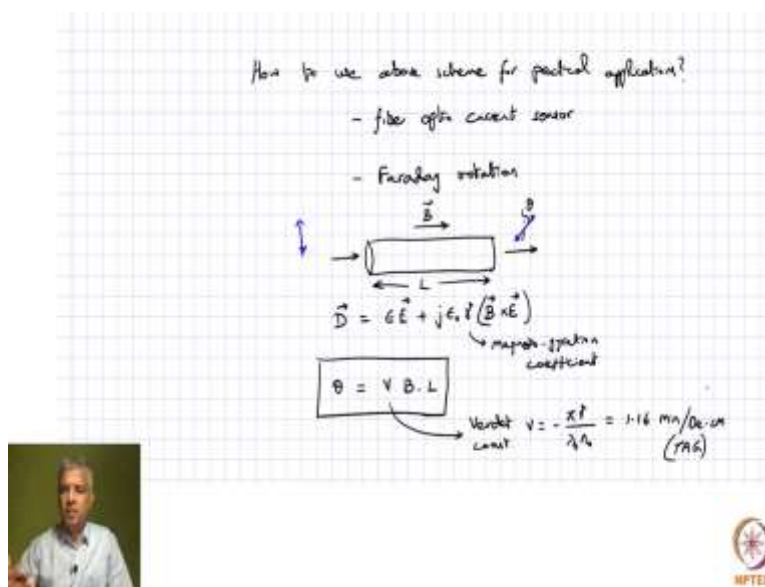 How to use above scheme for practical application?
- fiber optic current sensor
- Faraday rotation
B
θ
L
D = ϵE + jϵ₀γ(B×E)
magneto-gyration
coefficient
θ = V B. L
Verdet
const
V = - πγ/λ₀n₀ = 1.16 min/Oe-cm
(TAG)
NPTEL